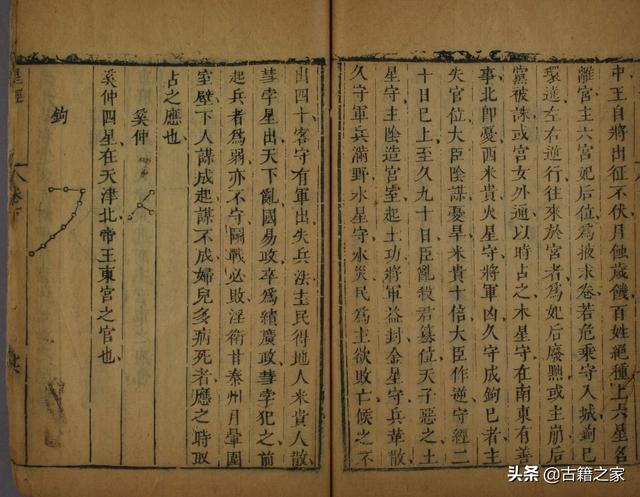 中王自將出征不伏月蝕歲饑百姓絕種上六星名
離宮主六宮妃后位為掖求卷若危乘守入城鉤巳
環遶左右逆行往來於宮者為妃后廢黜或主崩后
黨被誅或宮女外通以時占之木星守在南東有善
事北即憂西米貴火星守將軍凶久守成鉤巳者主
失官位大臣陰謀憂旱米貴十倍大臣作逆守經二
十日巳上至久九十日臣亂殺君墓位天子惡之土
星守主陰造官室起土功將軍益封金星守兵革散
久守軍兵滿野水星守水災民為主欲敗亡候之不
出四十客守有軍出失兵法主民得地人米貴人散
彗孛星出天下亂國易政卒為績廣政彗孛犯之前
起兵者為弱亦不守圖戰必敗淫衛甘秦州月暈圍
室壁下人謀成起謀不成婦兒多病死者應之時取
占之應也
奚仲
奚仲四星在天津北帝王東宮之官也
鉤
星經
卷下
头条 @古籍之家